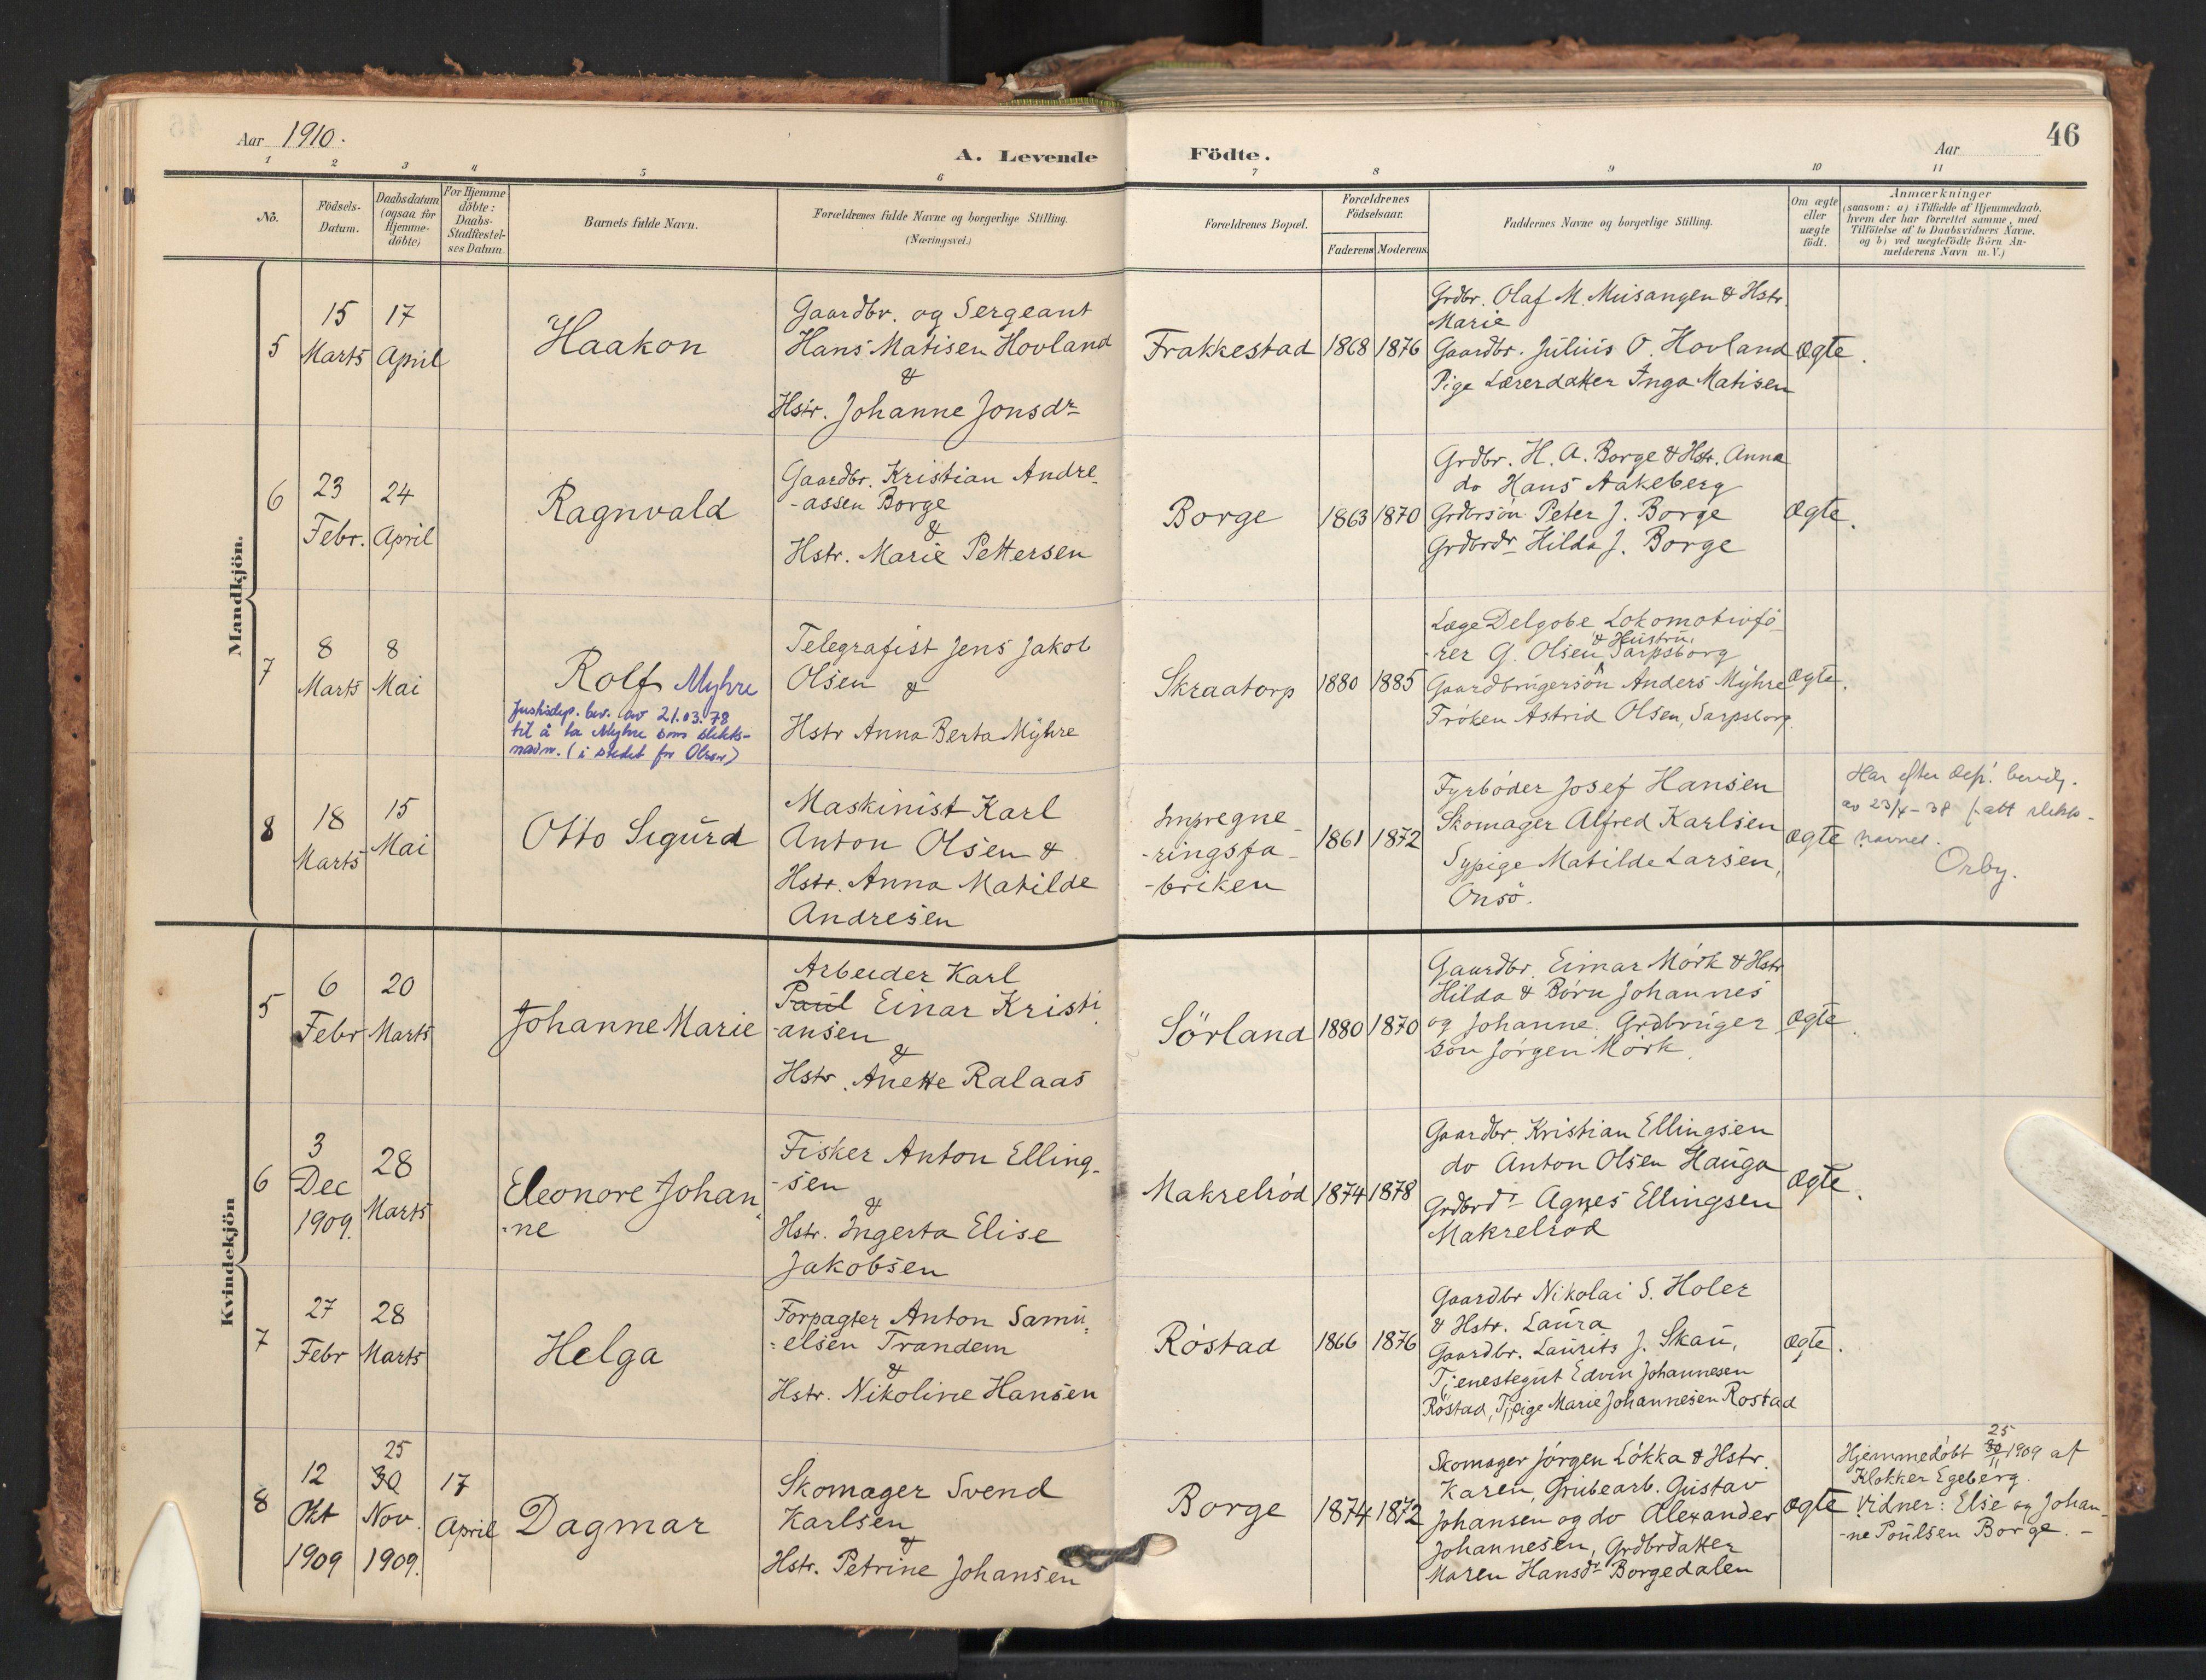 Aar 1910.
A. Levende Födte.
Aar
46
1 2 3 4 5 6 7 8 9 10 11
No.
Födsels-
Datum.
Daabsdatum
(ogsaa for
Hjemme-
döbte)
For Hjemme
döbte:
Daabs-
Stadfæstel-
ses Datum.
Barnets fulde Navn.
Forældrenes fulde Navne og borgerlige Stilling.
(Næringsvei.)
Forældrenes Bopæl.
Forældrenes
Födselsaar.
Faderens Moderens
Faddernes Navne og borgerlige Stilling.
Om ægte
eller
uægte
födt.
Anmærkninger
(saasom: a) i Tilfælde af Hjemmedaab,
hvem der har forrettet samme, med
Tilföielse af to Daabsvidners Navne.
og b) ved uægtefödte Börn An-
melderens Navn m. V.)
Mandkjön.
5
15
Marts
17
April
Haakon
Gaardbr. og Sergeant
Hans Matisen Hovland
&
Hstr. Johanne Jonsdr
Frakkestad
1868
1876
Grdbr. Olaf M. Musangen & Hstr.
Marie
Gaardbr. Julius O. Hovland
Pige Lærerdatter Inga Matisen
Ægte.
6
23
Febr.
24
April
Ragnvald
Gaardbr. Kristian Andre-
-assen Borge
&
Hstr. Marie Pettersen
Borge
1863
1870
Grdbr. H. A. Borge & Hstr. Anna
do Hans Aakeberg
Grdbrsön Peter J. Borge
Grdbrdr Hilda J. Borge
Ægte.
7
8
Marts
8
Mai
Rolf Myhre
Justisdep. bev. av 21.03.78
til å ta Myhre som slekts-
navn. (i stedet for Olsen)
Telegrafist Jens Jakob
Olsen &
Hstr Anna Berta Myhre
Skraatorp
1880
1885
Læge Delgobe Lokomotivfö-
& Hustru,
-rer G. Olsen Sarpsborg
Gaardbrugersön Anders Myhre
Fröken Astrid Olsen, Sarpsborg.
Ægte.
8
18
Marts
15
Mai
Otto Sigurd
Maskinist Karl
Anton Olsen &
Hstr. Anna Matilde
Andresen
Impregne-
-ringsfa-
-briken
1861
1872
Fyrböder Josef Hansen
Skomager Alfred Karlsen
Sypige Matilde Larsen,
Onsö.
Ægte
Har efter dep. bevilg.
av 23/4-38 fått slekts-
navnet.
Orby.
Kvindekjön
5
6
Febr
20
Marts
Johanne Marie
Arbeider Karl
Paul Einar Kristi-
-ansen
&
Hstr. Anette Ralaas
Sörland
1880
1870
Gaardbr. Eimar Mörk & Hstr
Hilda & Börn Johannes
og Johanne. Grdbruger
sön Jörgen Mörk.
Ægte.
6
3
Dec
1909.
28
Marts
Eleonore Johan-
-ne
Fisker Anton Elling-
-sen
&
Hstr. Ingerta Elise
Jakobsen
Makrelröd
1874
1878
Gaardbr. Kristian Ellingsen
do Anton Olsen Hauga
Grdbrdr Agnes Ellingsen
Makrelröd
Ægte.
7
27
Febr
28
Marts
Helga
Forpagter Anton Samu-
-elsen Trandem
&
Hstr. Nikoline Hansen
Röstad
1866
1876
Gaardbr Nikolai S. Holer
& Hstr. Laura
Gaardbr. Laurits J. Skau,
Tjenestegut Edvin Johannesen
Röstad, Tjpige Marie Johannesen Rostad
Ægte.
8
12
Okt
1909
25
30
Nov.
1909.
17
April
Dagmar
Skomager Svend
Karlsen
&
Hstr. Petrine Johansen
Borge
1874
1872
Skomager Jörgen Lökka & Hstr.
Karen, Grubearb. Gustav
Johansen og do Alexander
Johannesen, Grdbrdatter
Maren Hansdr Borgedalen
Ægte
25
Hjemmedöbt 30/11 1909 af
Klokker Egeberg.
Vidner: Else og Johan-
-ne Poulsen Borge. -